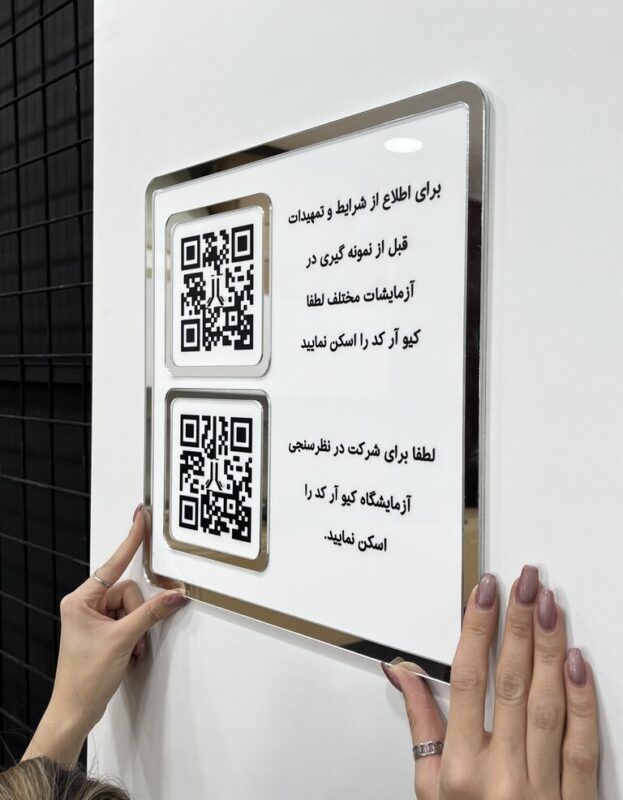 برای اطلاع از شرایط و تمهیدات
قبل از نمونه گیری در
آزمایشات مختلف لطفا
کیو آر کد را اسکن نمایید
لطفا برای شرکت در نظرسنجی
آزمایشگاه کیو آر کد را
اسکن نمایید.